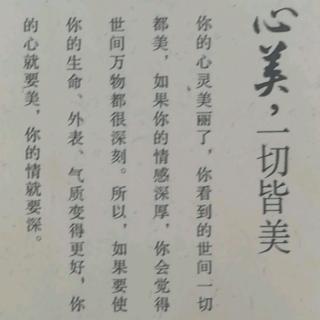 心美，一切皆美
你的心灵美丽了，你看到的世间一切
都美，如果你的情感深厚，你会觉得
世间万物都很深刻。所以，如果要使
你的生命、外表、气质变得更好，你
的心就要美，你的情就要深。